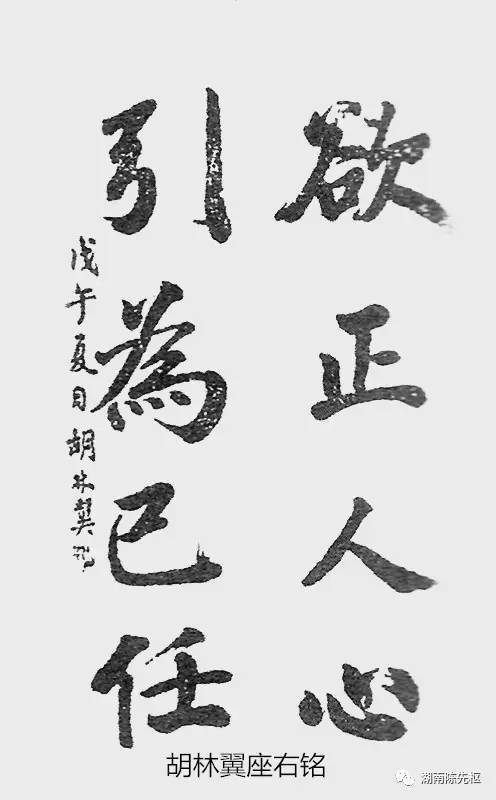 欲正人心
引為己任
戊午夏日胡林翼
胡林翼座右铭
湖南陈先枢